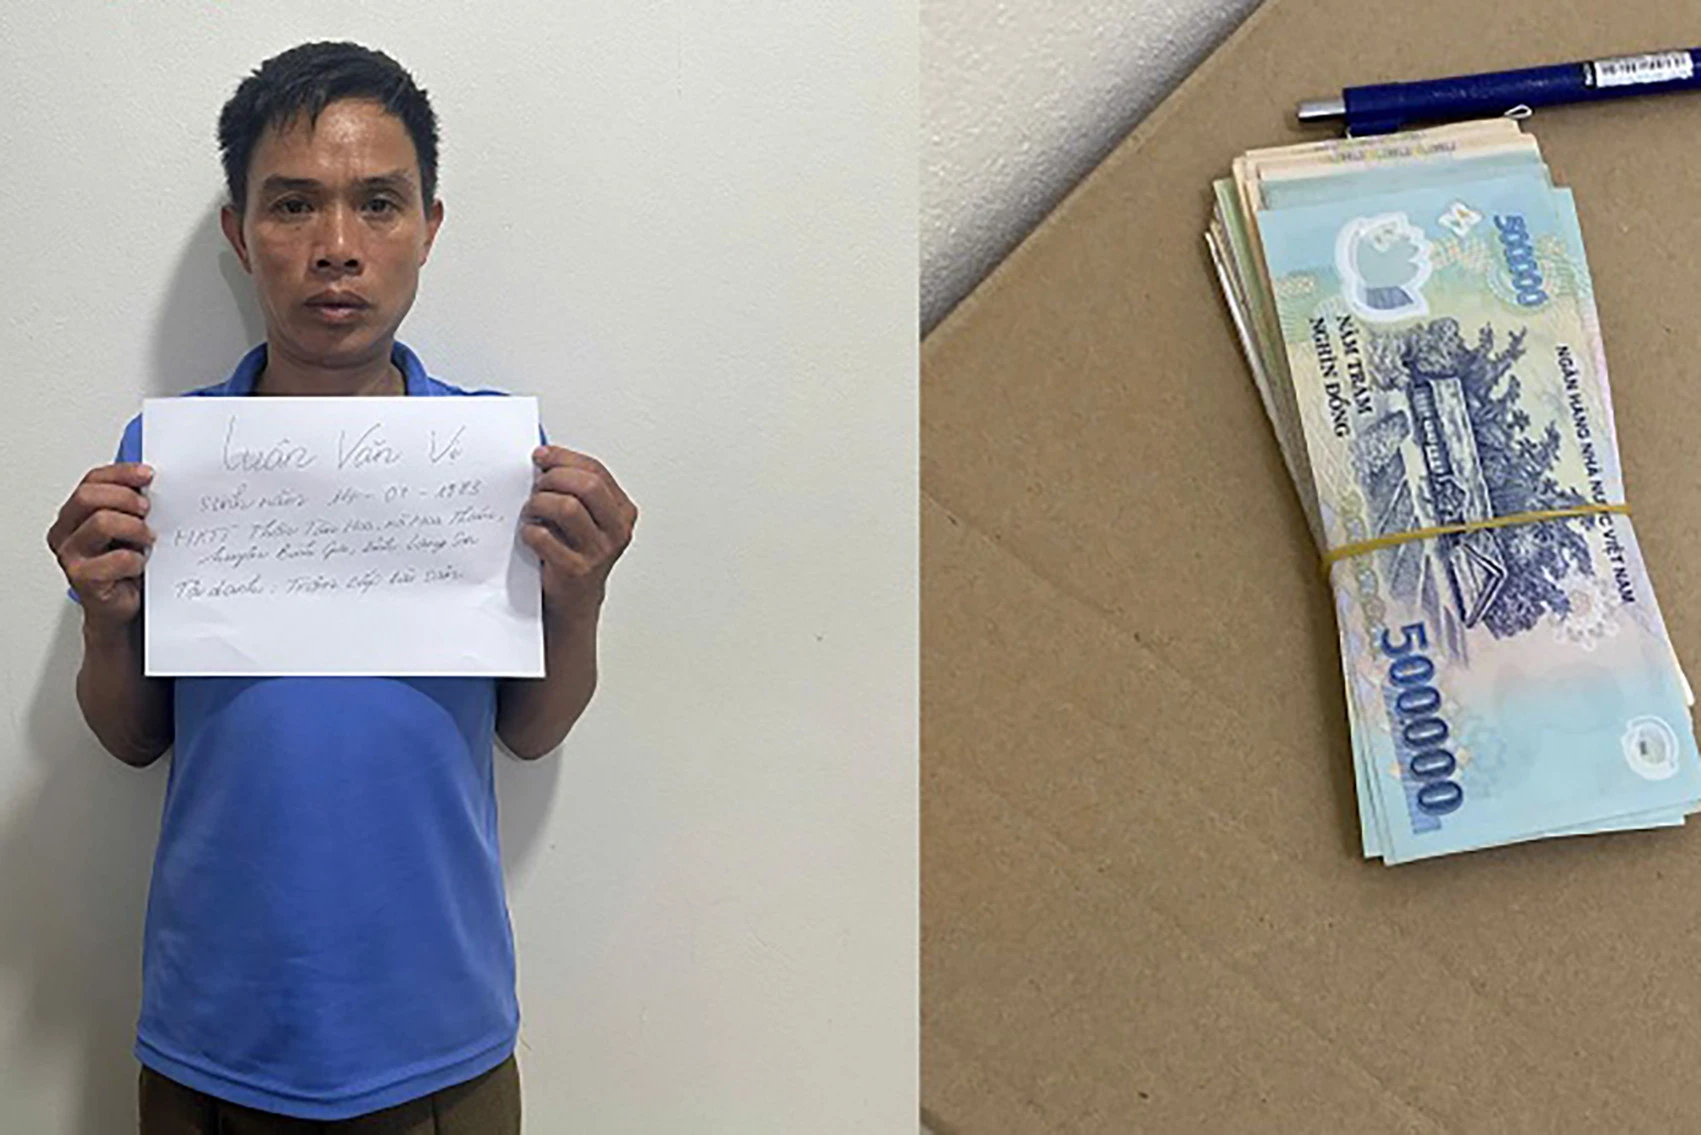 Luân Văn Vi
Sinh năm 14 - 01 - 1983
HKTT Thôn Tân Hoa, xã Hoa Thám,
huyện Bình Gia, tỉnh Lạng Sơn
Tội danh: Trộm cắp tài sản
500000
NĂM TRĂM
NGHÌN ĐỒNG
NGÂN HÀNG NHÀ NƯỚC VIỆT NAM
500000